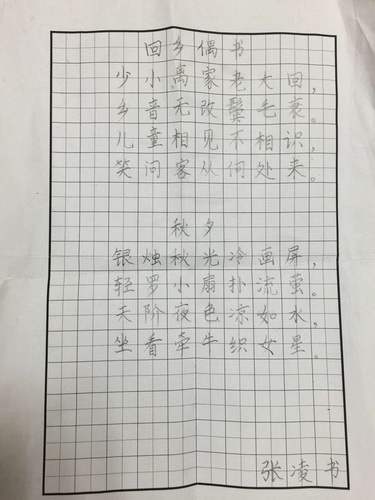 回乡偶书
少小离家老大回，
乡音无改鬓毛衰。
儿童相见不相识，
笑问客从何处来。
秋夕
银烛秋光冷画屏，
轻罗小扇扑流萤。
天阶夜色凉如水，
坐看牵牛织女星。
张凌书